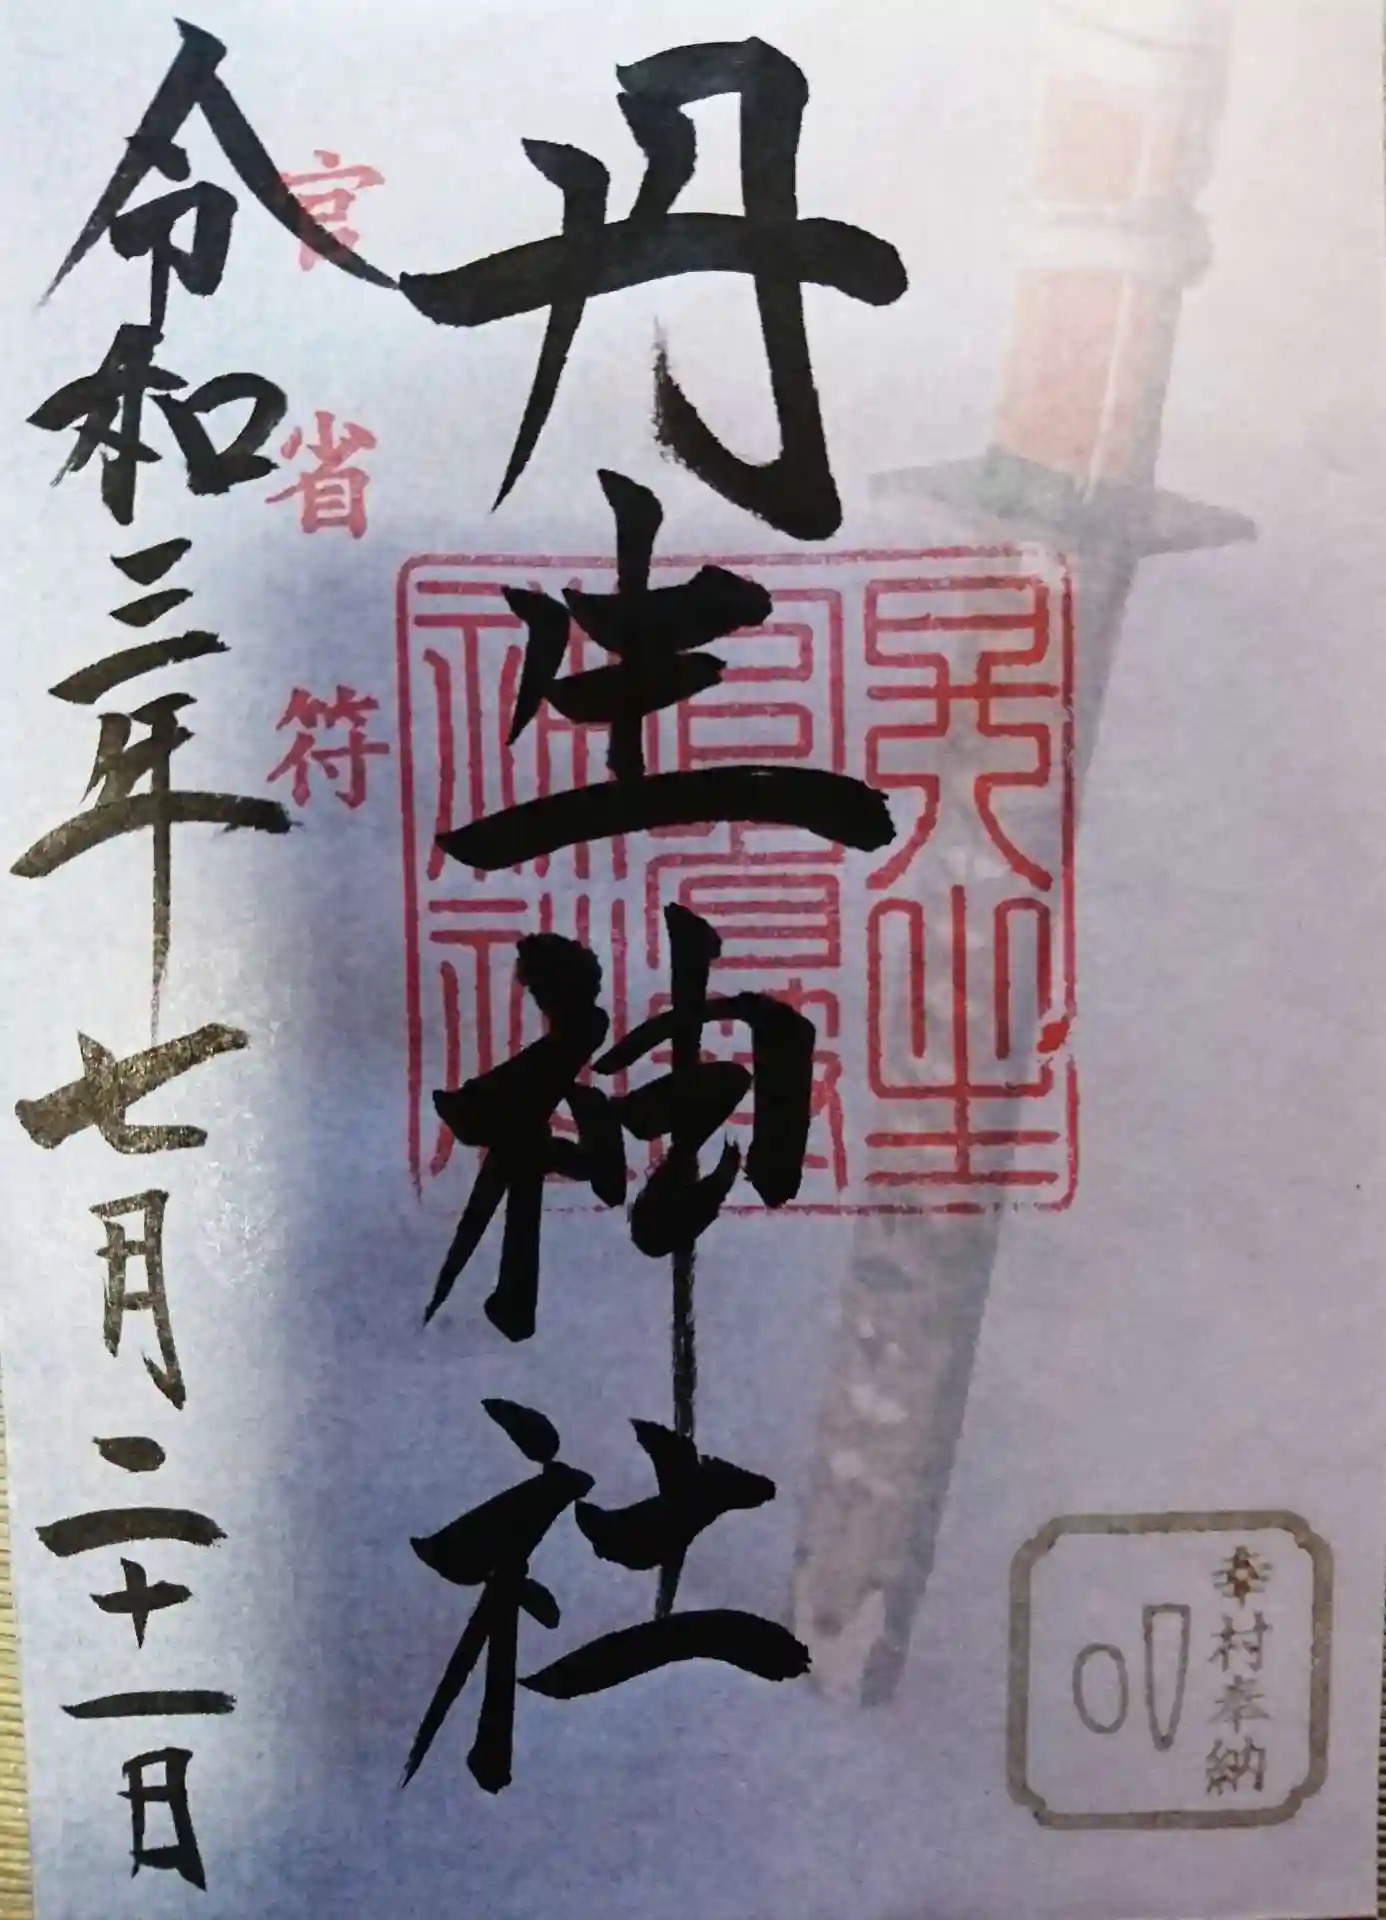 幸村奉納
丹生神社
丹生
官省符
神社
官省符
令和三年七月二十一日